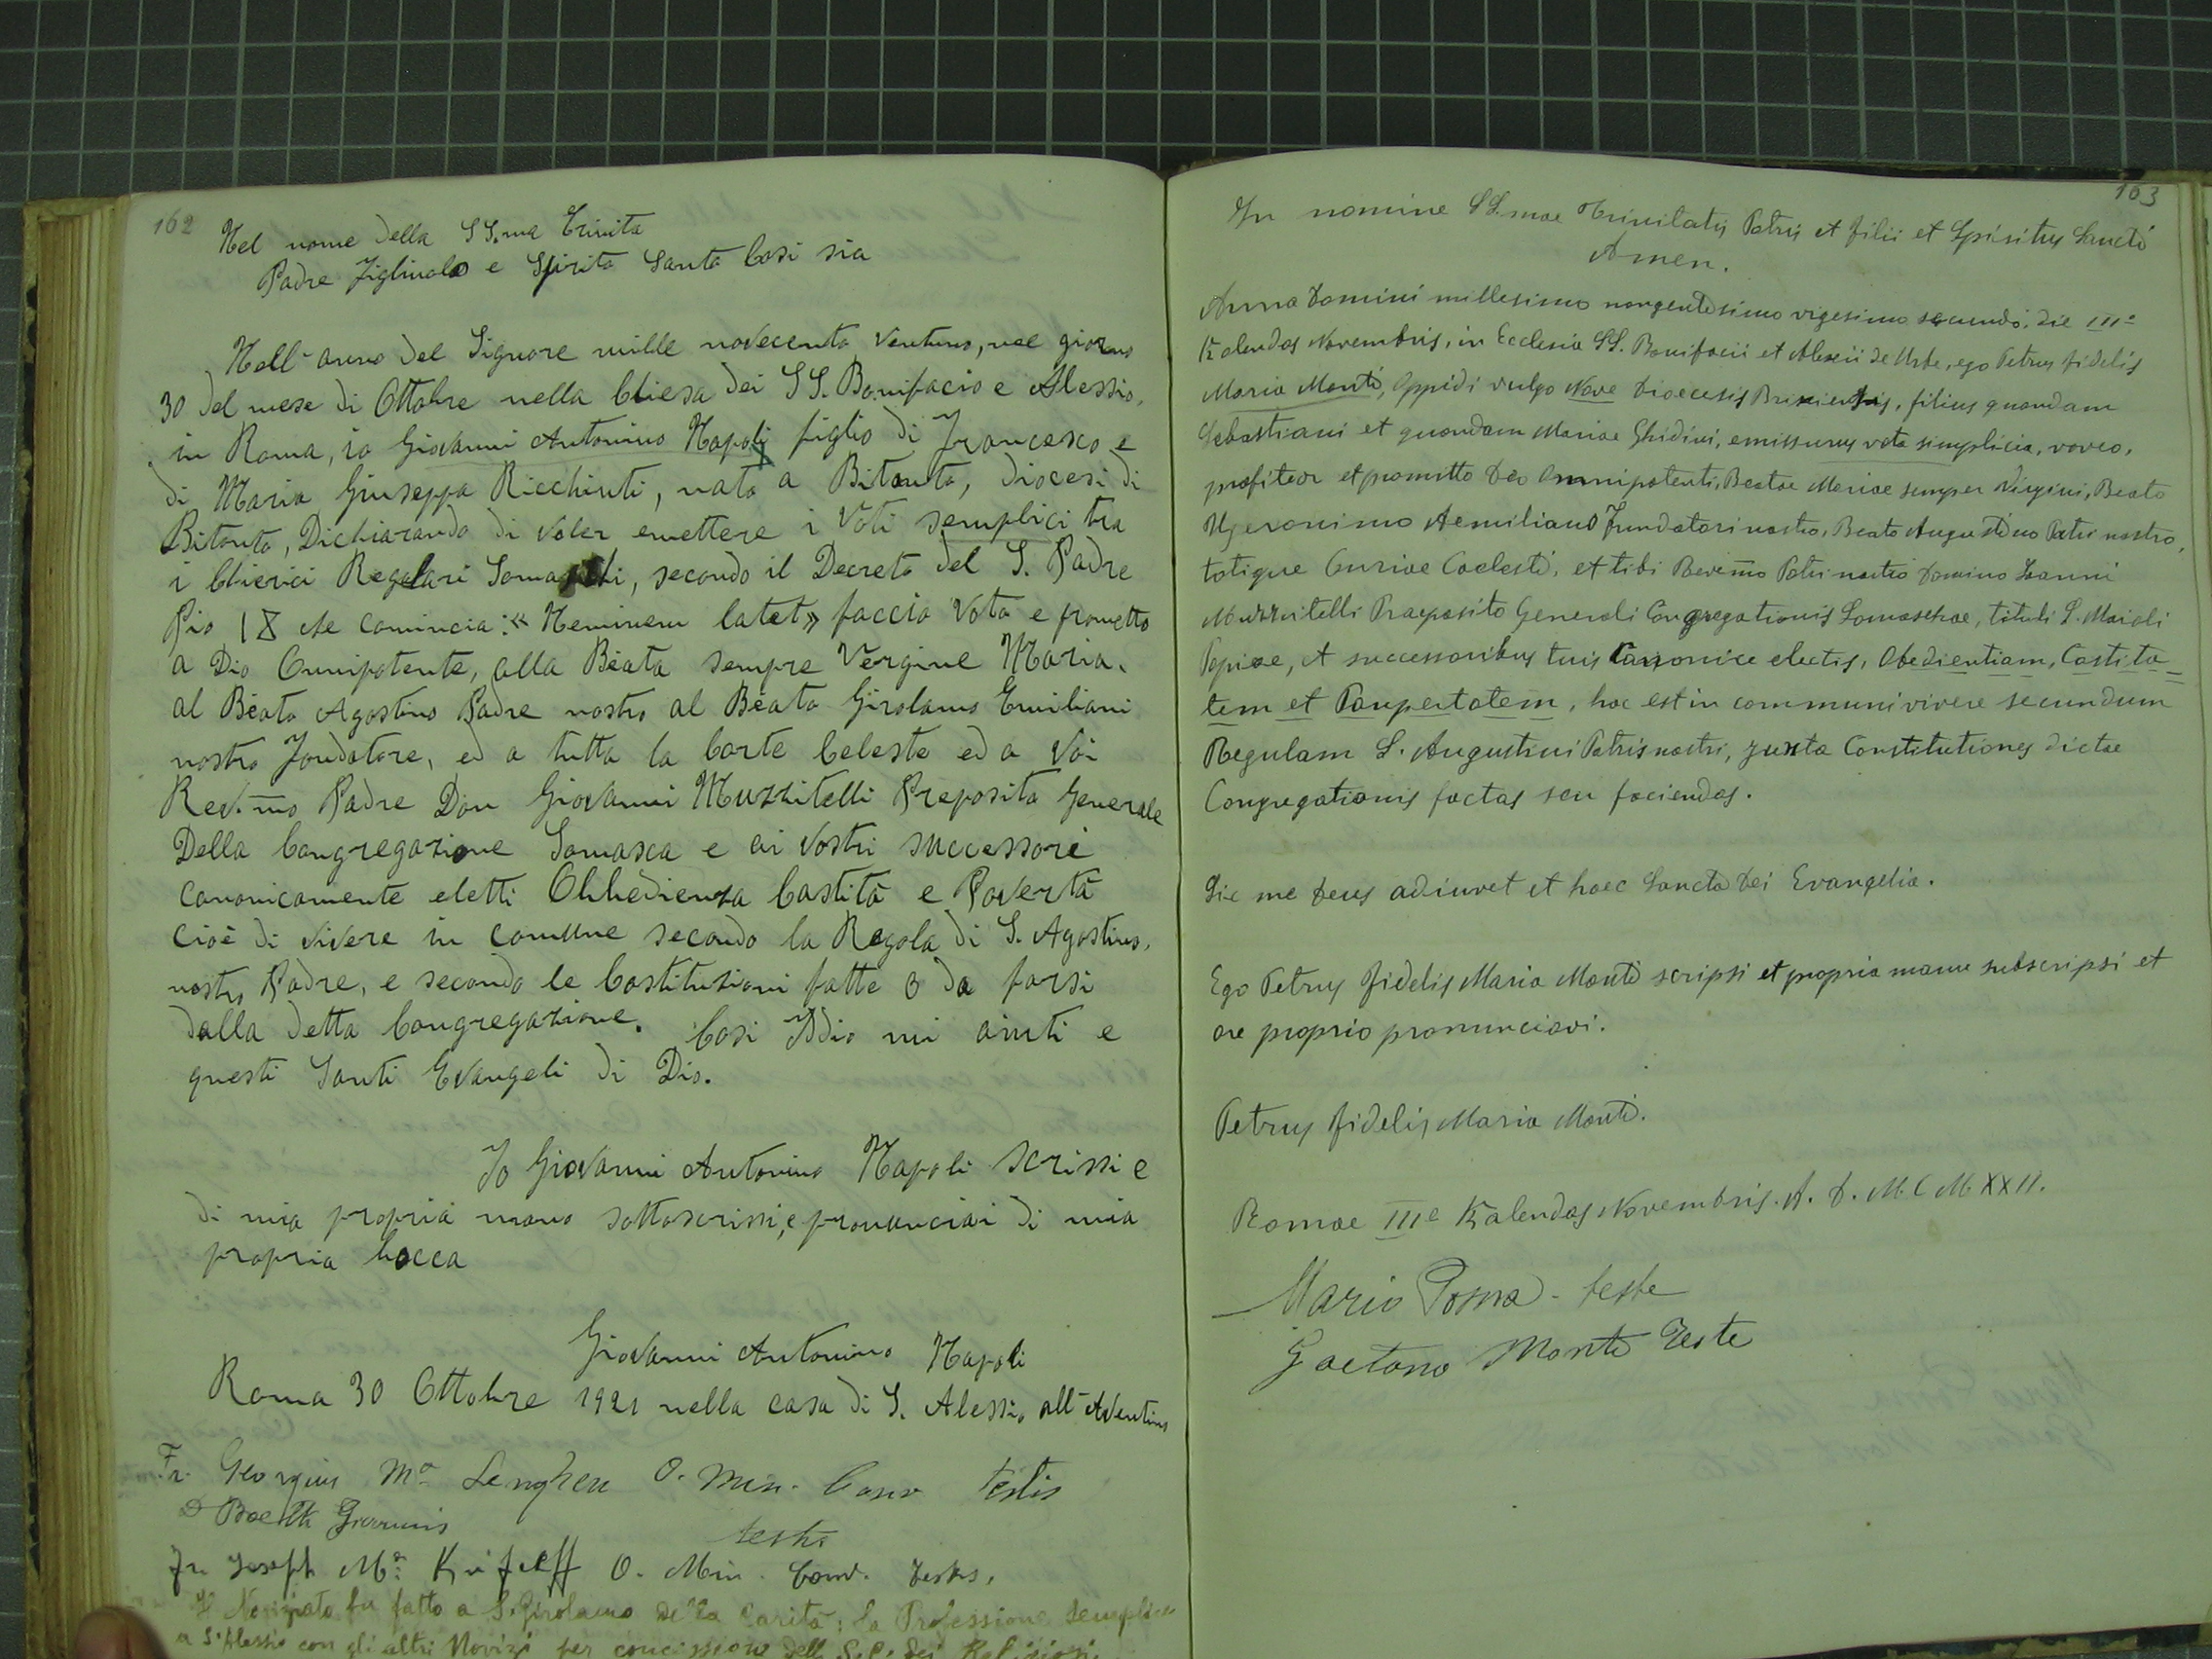 162
Nel nome della SS.ma Trinita
Padre Figliuolo e Spirito Santo Cosi sia
Nell'anno del Signore mille novecento ventuno, nel giorno
30 del mese di Ottobre nella Chiesa dei SS. Bonifacio e Alessio,
in Roma, io Giovanni Antonino Napoli figlio di Francesco e
di Maria Giuseppa Ricchiuti, nato a Bitonto, diocesi di
Bitonto, Dichiarando di voler emettere i Voti semplici tra
i Chierici Regolari Somaschi, secondo il Decreto del S. Padre
Pio IX che comincia: «Neminem latet» faccio Voto e prometto
a Dio Onnipotente, alla Beata sempre Vergine Maria,
al Beato Agostino Padre nostro al Beato Girolamo Emiliani
nostro Fondatore, ed a tutta la Corte Celeste ed a Voi
Rev.mo Padre Don Giovanni Muzzitelli Preposito Generale
Della Congregazione Somasca e ai Vostri successori
canonicamente eletti Obbedienza Castità e Povertà
cioè di vivere in comune secondo la Regola di S. Agostino,
nostro Padre, e secondo le Costituzioni fatte o da farsi
dalla detta Congregazione. Cosi Iddio mi aiuti e
questi Santi Evangeli di Dio.
Io Giovanni Antonino Napoli scrissi e
di mia propria mano sottoscrissi, e pronunciai di mia
propria bocca
Giovanni Antonino Napoli
Roma 30 Ottobre 1921 nella casa di S. Alessio all'Aventino
Fr. Georgius Ma Lenghen O. Min. Conv testis
D Boetti Giovanni
teste
Fr Joseph Ma: O. Min. Conv. testis,
Il Noviziato fu fatto a S. Girolamo della Carità; la Professione semplice
a S. Alessio con gli altri Novizi per concessione della S.C. dei Religiosi
163
In nomine SS.mae Trinitatis Patris et filii et Spiritus Sancti
Amen.
Anno Domini millesimo nongentesimo vigesimo secundo, die IIIe
Kalendas Novembris, in Ecclesia SS. Bonifacii et Alexii de Urbe, ego Petrus fidelis
Maria Monti, Oppidi vulgo Nave Dioecesis Brixiensis, filius quondam
Sebastiani et quondam Mariae Ghidini, emissurus vota simplicia, voveo,
profiteor et promitto Deo Omnipotenti, Beatae Mariae semper Virgini, Beato
Hyeronimo Aemiliano Fundatori nostro, Beato Augustino Patri nostro,
totique Curiae Coelesti, et tibi Rev.mo Patri nostro Domino Joanni
Muzzitelli Praeposito Generali Congregationis Somaschae, tituli S. Maioli
Papiae, et successoribus tuis Canonice electis, Obedientiam, Castita=
tem et Paupertatem, hoc est in communi vivere secundum
Regulam S. Augustini Patris nostri, juxta Constitutiones dictae
Congregationis factas seu faciendas.
Sic me Deus adiuvet et haec Sancta Dei Evangelia.
Ego Petrus fidelis Maria Monti scripsi et propria manu subscripsi et
ore proprio pronunciavi.
Petrus fidelis Maria Monti.
Romae IIIe Kalendas Novembris. A. D. M.C M.XXII.
Mario Poma - teste
Gaetano Monti Teste